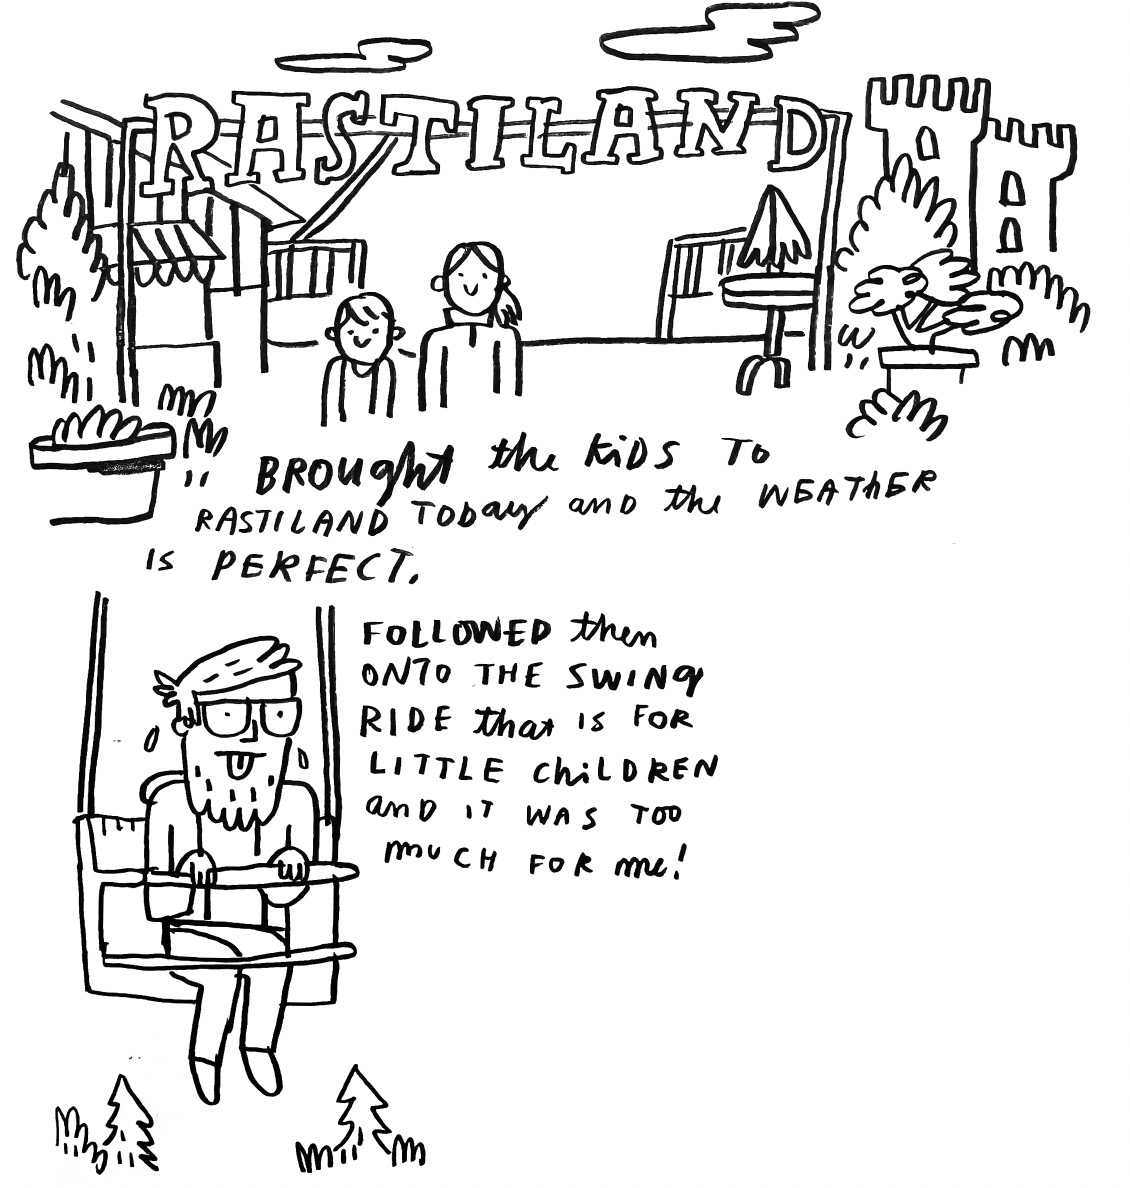 RASTILAND
BROUGHT the KIDS TO
RASTILAND TODAY AND the WEATHER
IS PERFECT.
FOLLOWED them
ONTO THE SWING
RIDE that IS FOR
LITTLE CHILDREN
AND IT WAS TOO
MUCH FOR me!